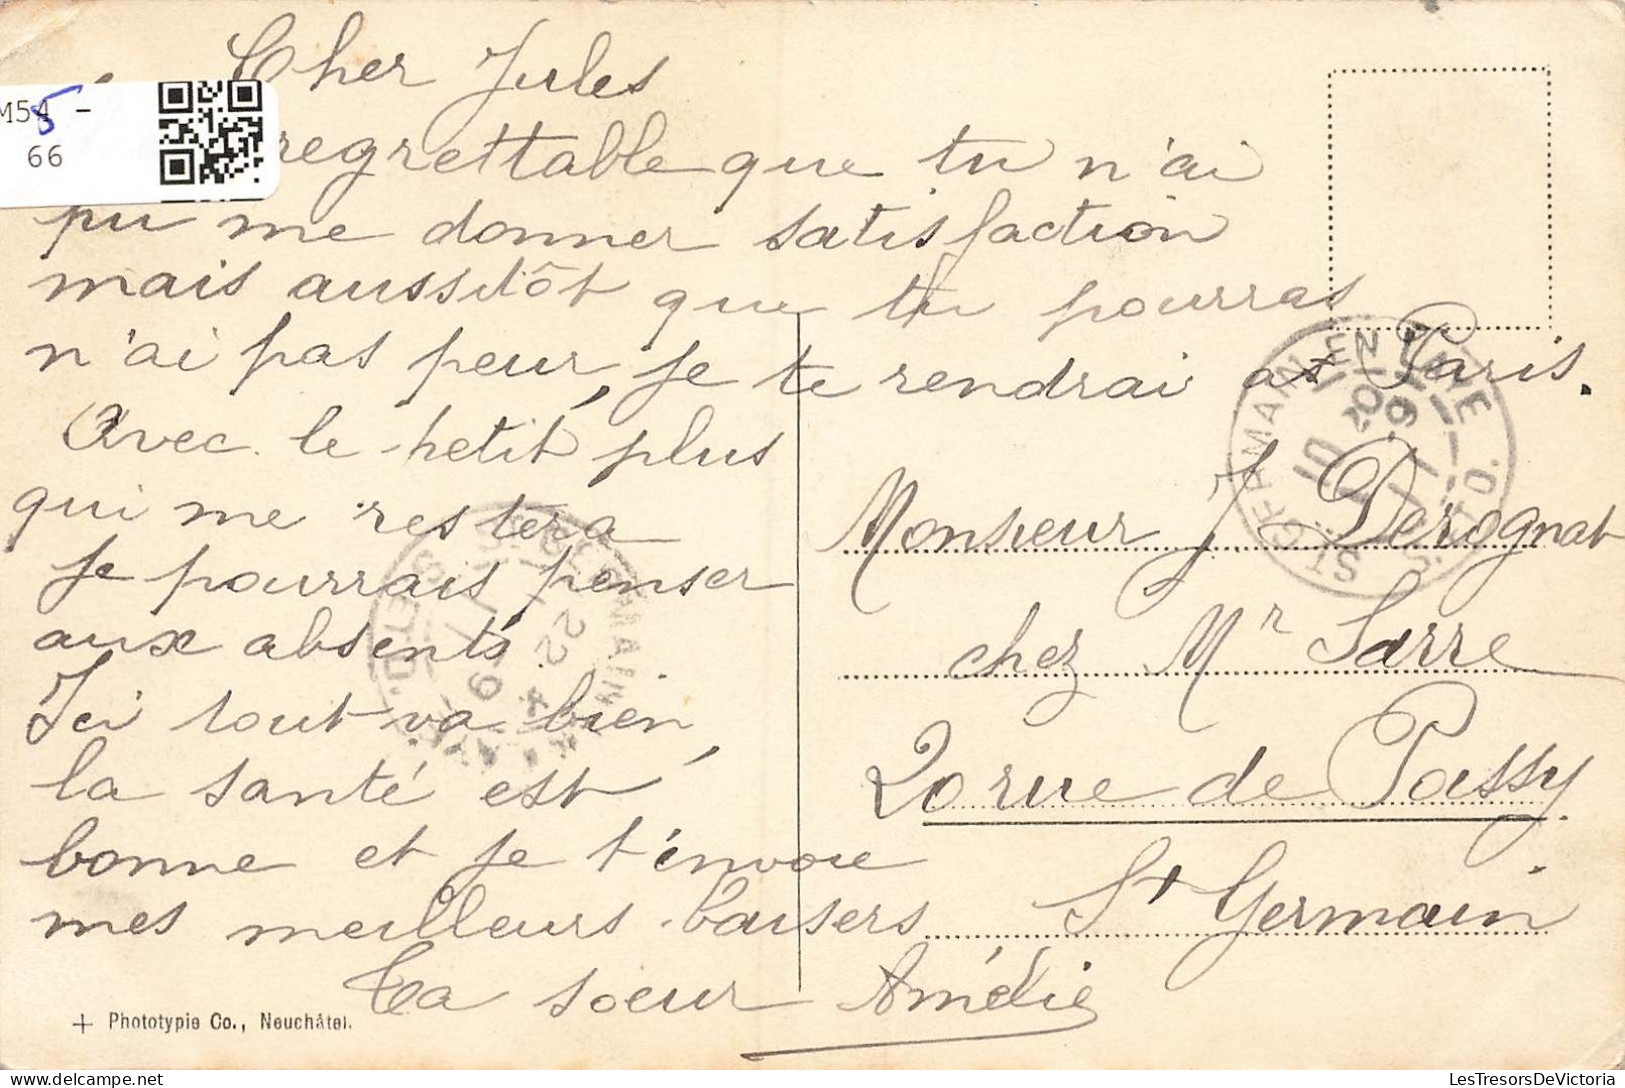 Cher Jules
regrettable que tu n'ai
pu me donner satisfaction
mais aussitôt que tu pourras
n'ai pas peur, je te rendrai as Paris.
Avec le petit plus
qui me restera
je pourrais penser
aux absents.
Ici tout va bien,
la santé est
bonne et je t'envoie
mes meilleurs baisers
Ta soeur Amélie
Monsieur J Derognat
chez Mr Sarre
20 rue de Passy
St Germain
ST GERMAIN EN LAYE
S. ET O.
M54 -
5
66
+ Phototypie Co., Neuchâtel.
LesTresorsDeVictoria